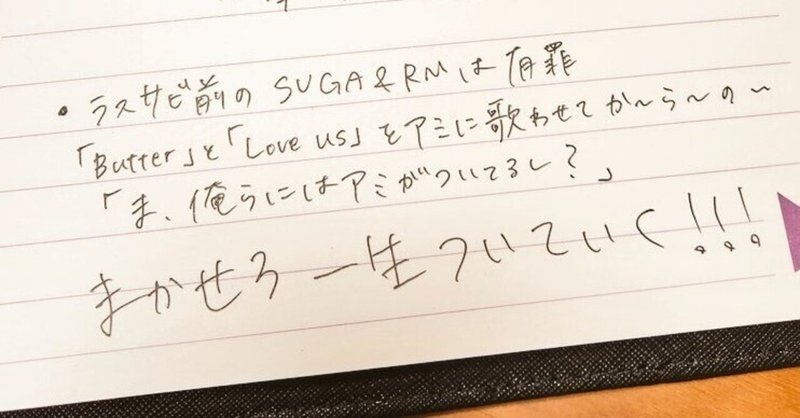 ・ラスサビ前の SUGA&RMは有罪
「Butter」と「Love us」をアミに歌わせてか〜ら〜の〜
「ま、俺らにはアミがついてるし？」
まかせろ一生ついていく!!!